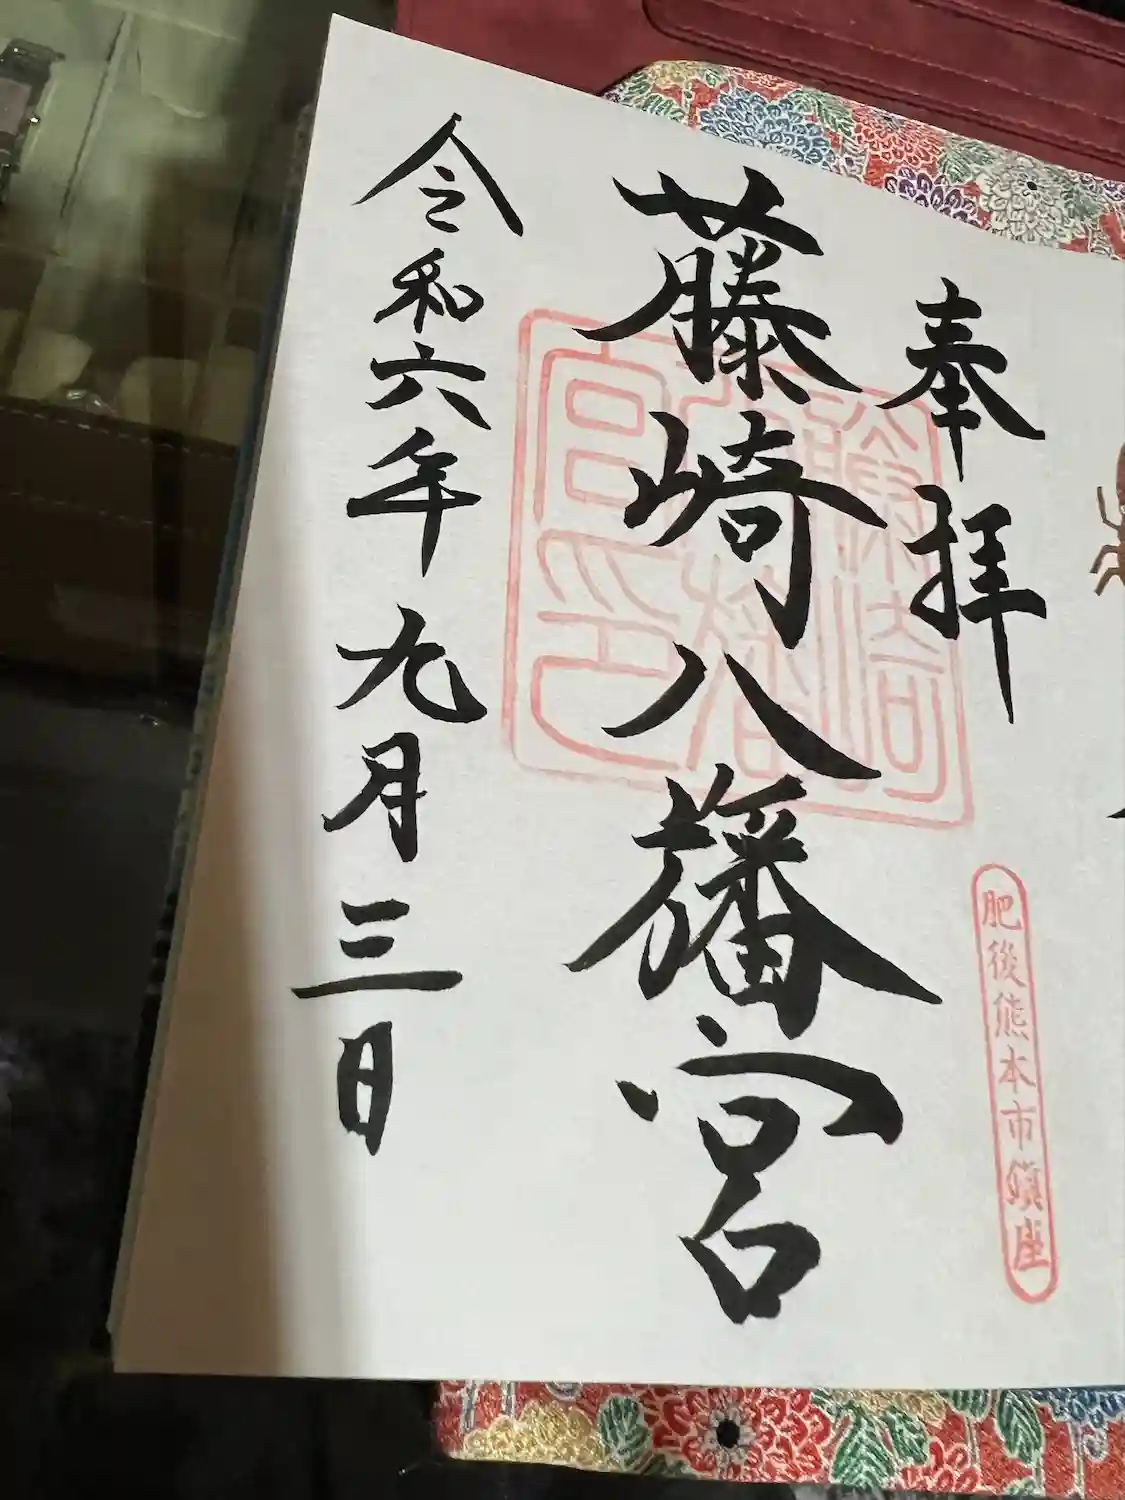 奉拝
肥後熊本市鎮座
藤崎八旛宮
令和六年九月三日